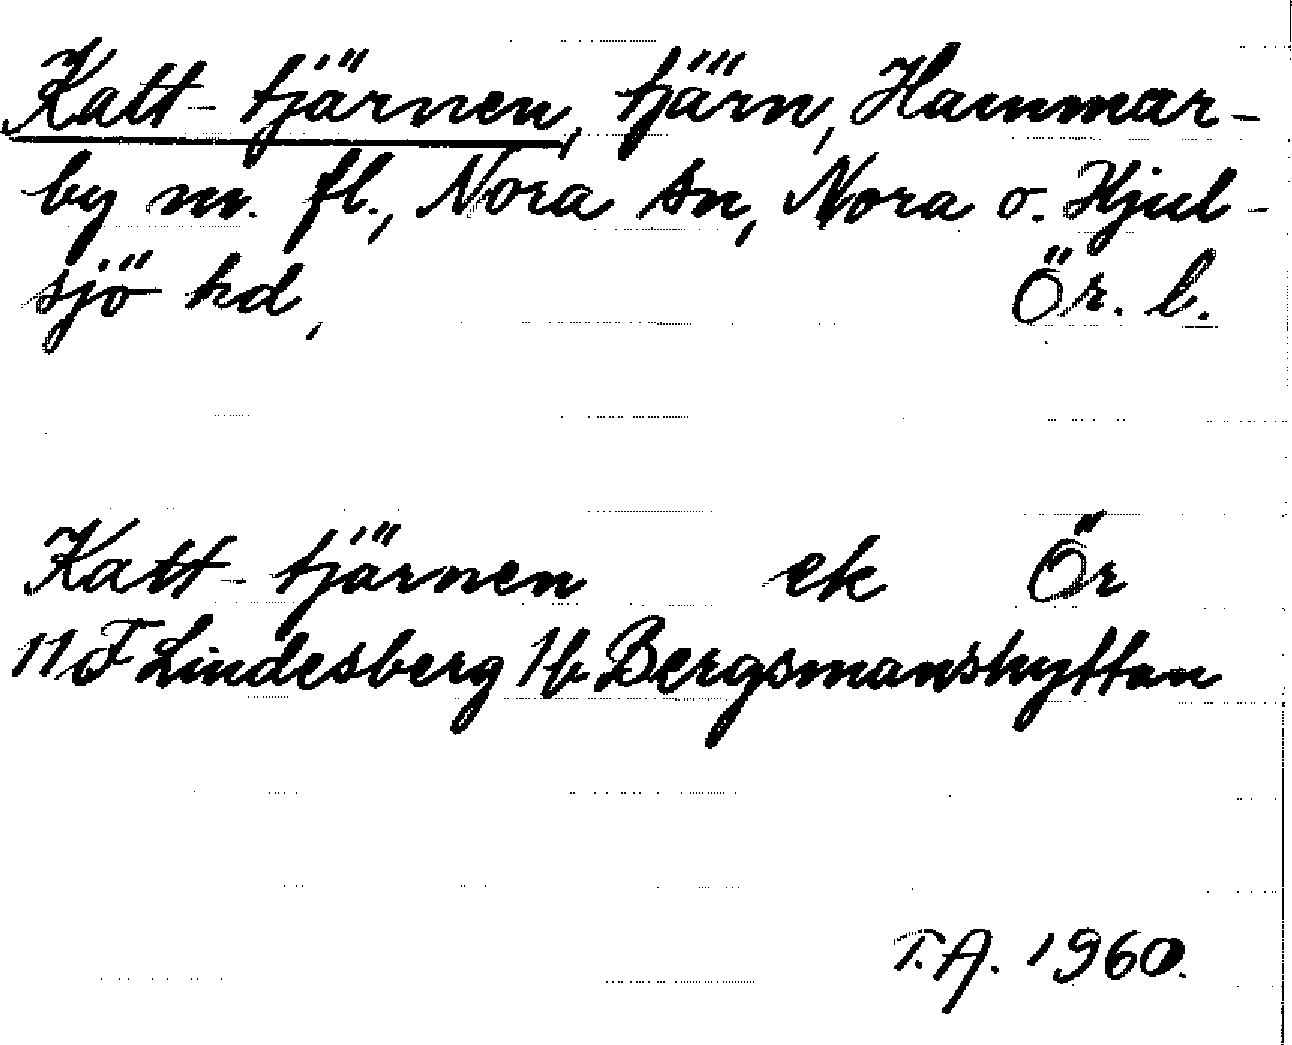 Katt-tjärnen, tjärn, Hammar-
by m. fl., Nora sn, Nora o. Hjul-
sjö hd, Ör. l.
Katt-tjärnen ek Ör
11 F Lindesberg 1 b Bergsmanshyttan
T.A. 1960.